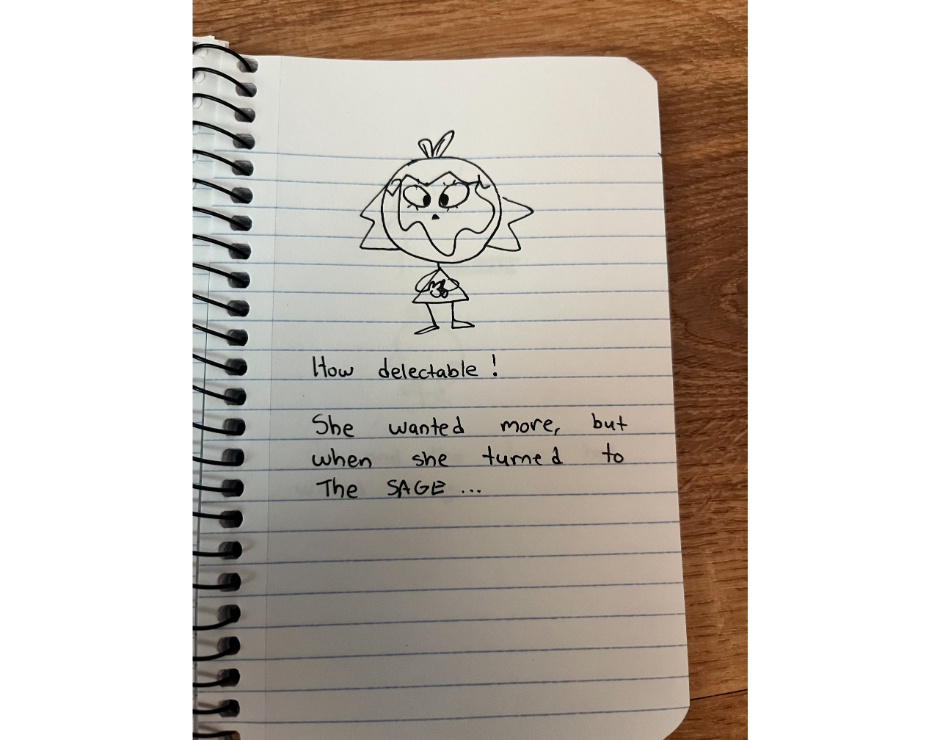 How delectable!
She wanted more, but
when she turned to
The SAGE...